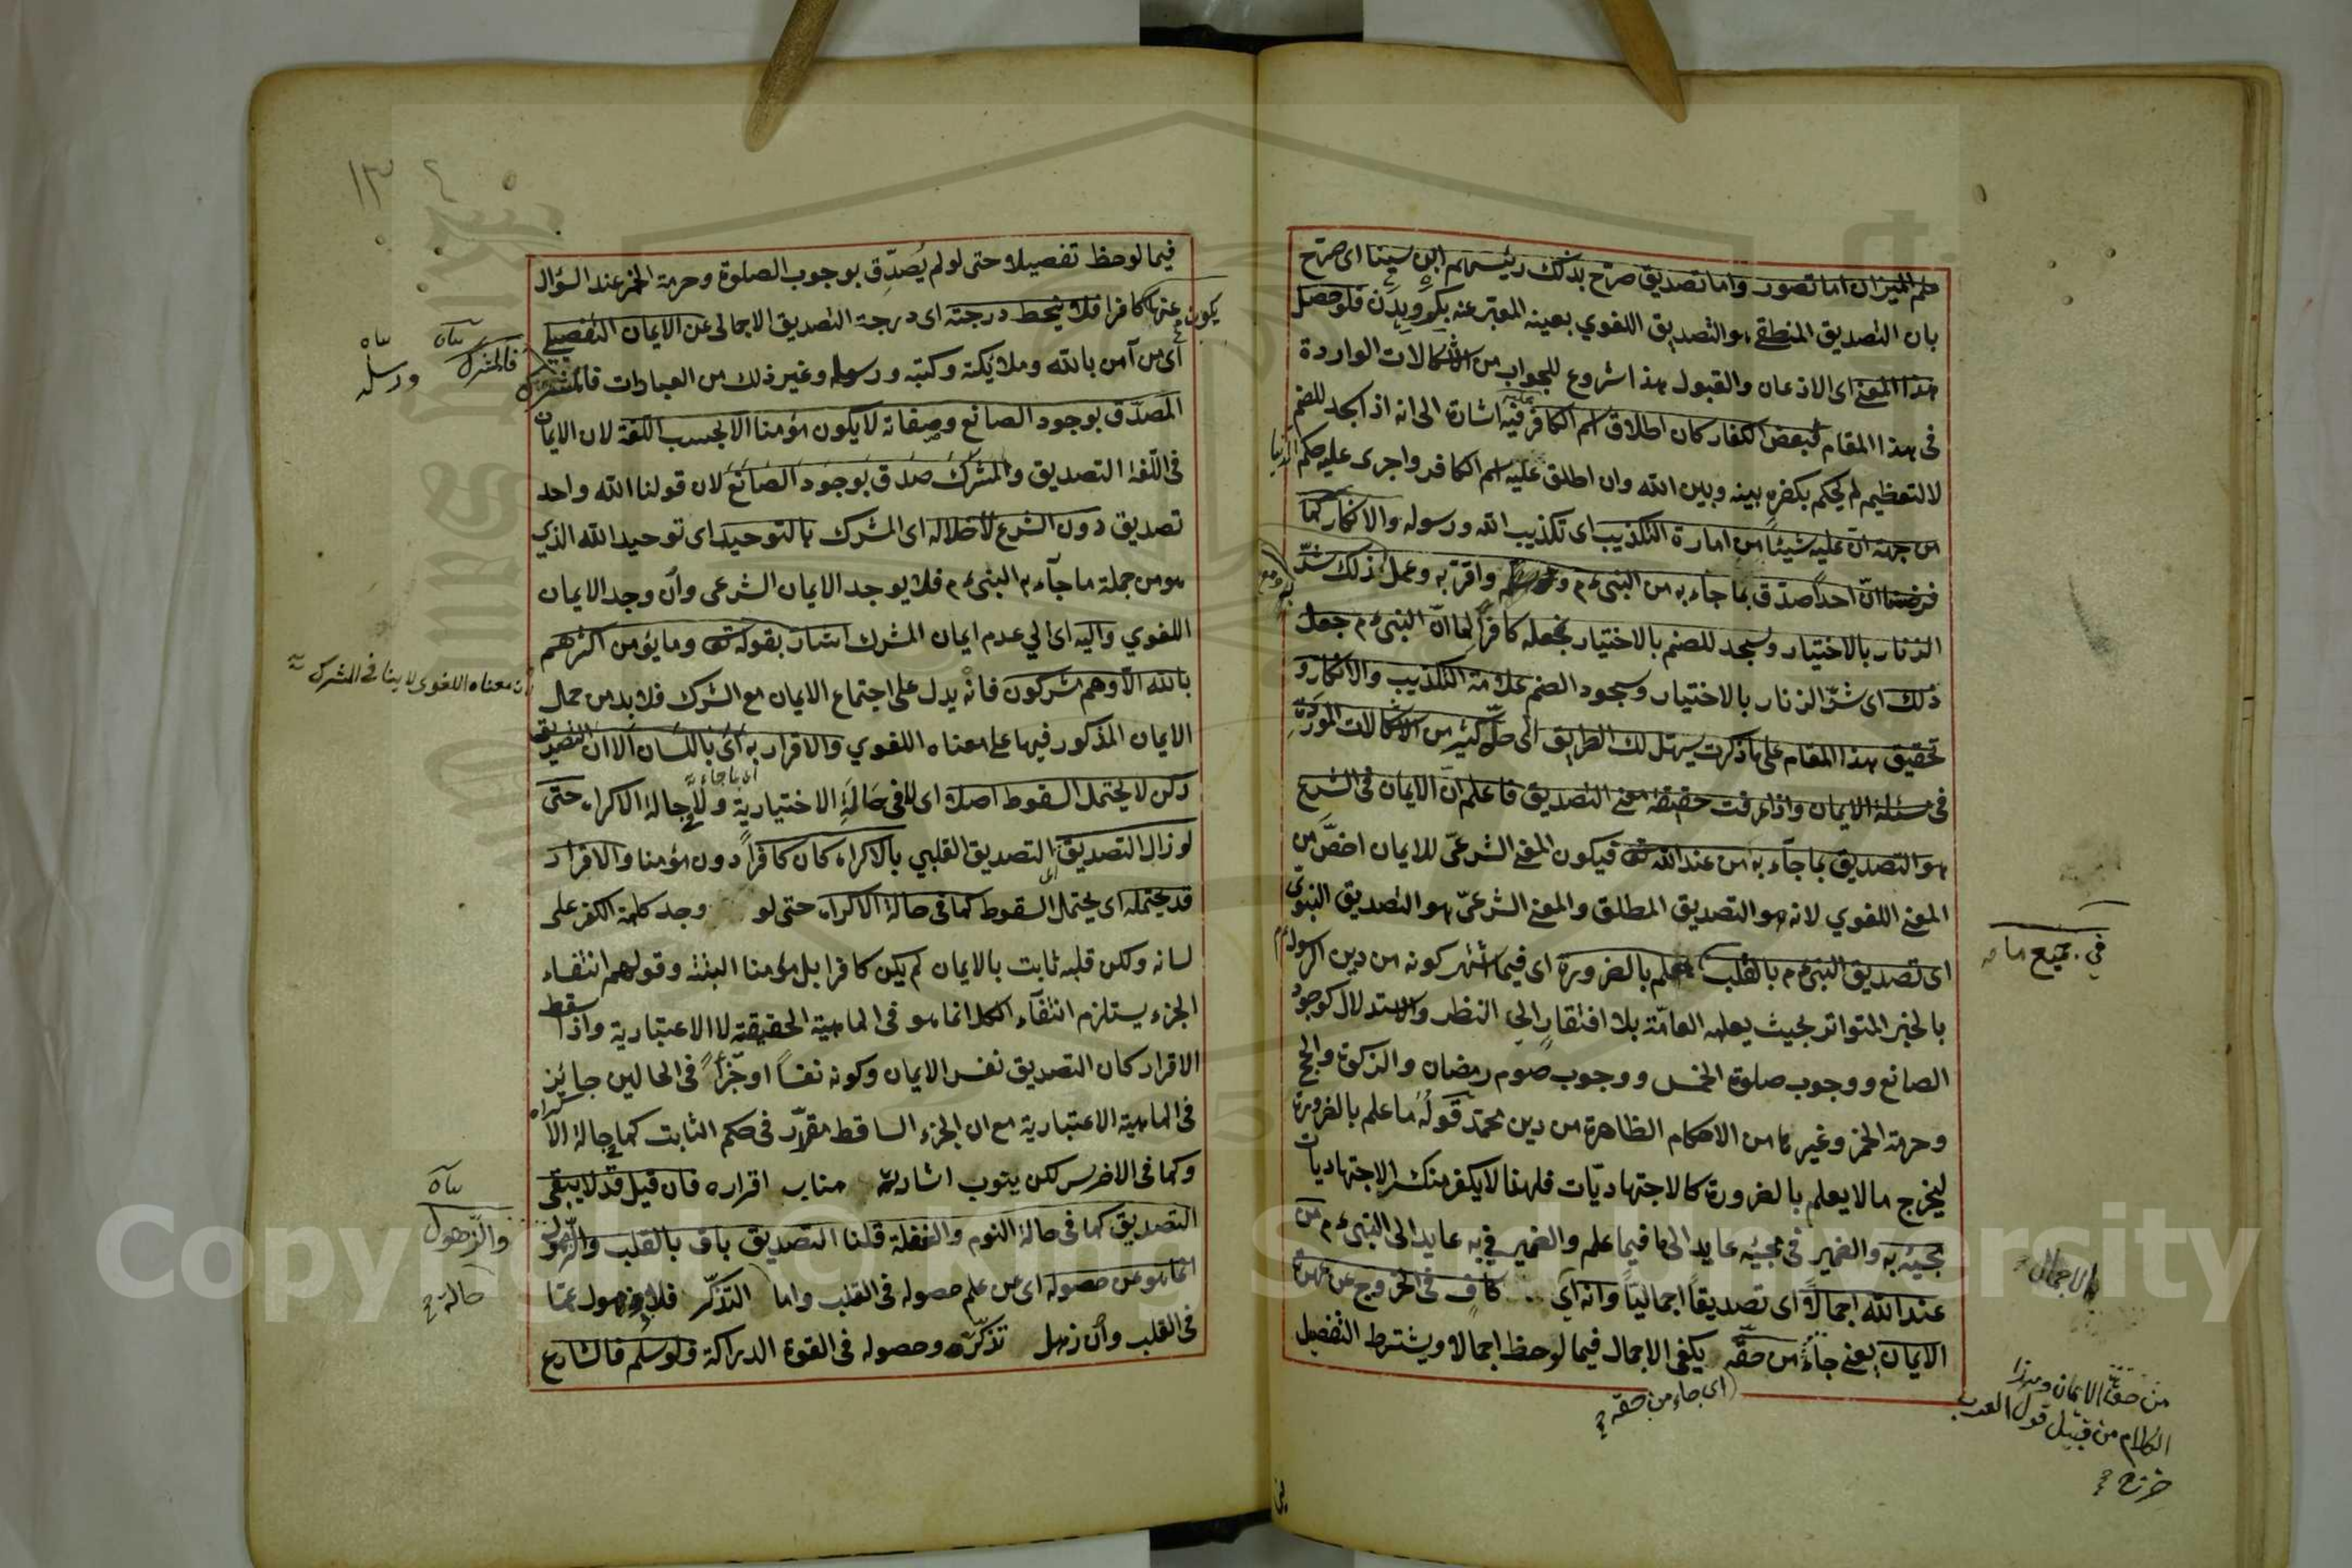 علم الميزان اما تصور واما تصديق صرّح بذلك رئيسهم ابن سينا اى صرّح
بان التصديق المنطقي هو التصديق اللغوي بعينه المعبّر عنه بكرويدن فلو حصل
هذا المعنى اى الاذعان والقبول هذا شروع للجواب من الاشكالات الواردة
فى هذا المقام لبعض الكفار كان اطلاق اسم الكافر عليه فيه اشارة الى انه اذا سجد للصنم
لا لتعظيم لم يحكم بكفره بينه وبين الله وان اطلق عليه اسم الكافر واجرى عليه حكم الدنيا
من جهة ان عليه شيئاً من امارة التكذيب اى تكذيب الله ورسوله والانكار كما
فرضنا انّ احداً صدّق بما جاء به من النبى ءم واقرّ به وعمل ذلك شدّ
الزنار بالاختيار وسجد للصنم بالاختيار نجعله كافراً لما انّ النبى ءم جعل
ذلك اى شدّ الزنار بالاختيار وسجود الصنم علامة التكذيب والانكار و
تحقيق هذا المقام على ما ذكرت يسهّل لك الطريق الى حلّ كثير من الاشكالات الموردة
فى مسئلة الايمان واذا عرفت حقيقة معنى التصديق فاعلم انّ الايمان فى الشرع
هو التصديق بما جآء به من عند الله تعا فيكون المعنى الشرعىّ للايمان اخصّ من
المعنى اللغوي لانه هو التصديق المطلق والمعنى الشرعىّ هو التصديق النبوّى
اى تصديق النبى ءم بالقلب علم بالضرورة اى فيما اشتهر كونه من دين الرسول ءم
فى جميع ما
بالخبر المتواتر بحيث يعلمه العامّة بلا افتقارٍ الى النظر والاستدلال كوجود
الصانع ووجوب صلوة الخمس ووجوب صوم رمضان والزكوة والحج
وحرمة الخمر وغيرها من الاحكام الظاهرة من دين محمّد قوله ما علم بالضرورة
ليخرج مالا يعلم بالضرورة كالاجتهاديّات فلهذا لا يكفر منكر الاجتهاديات
مجيئه به والضمير فى مجيئه عايد الى ما فيما علم والضمير فى به عايد الى النبى ءم من
عند الله اجمالاً اى تصديقاً اجمالياً وانه اى كافٍ فى الخروج عن عهدة
الاجمال
الايمان يعنى جاء من حقّه يكفى الاجمال فيما لوحظ اجمالا ويشترط التفصيل
اى جاء من حقه
من حقّه الايمان وهذا
الكلام من قبيل قول العرب
فيما لوحظ تفصيلا حتى لو لم يُصدِّق بوجوب الصلوة وحرمة الخمر عند السؤال
يكون عنها كافرا فلا ينحط درجته اى درجة التصديق الاجمالى عن الايمان التفصيلى
اى من آمن بالله وملائكته وكتبه ورسوله وغير ذلك من العبادات فالمشرك
فالمشرك
ورسله
المصدّق بوجود الصانع وصفاته لا يكون مؤمنا الا بحسب اللغة لان الايمان
فى اللّغة التصديق والمشرك صدق بوجود الصانع لان قولنا الله واحد
تصديق دون الشرع لاخلاله اى المشرك بالتوحيد اى توحيد الله الذى
هو من جملة ما جآء به النبى ءم فلا يوجد الايمان الشرعى وان وجد الايمان
اللغوي واليه اى الي عدم ايمان المشرك اشار بقوله تعا وما يؤمن اكثرهم
بالله الّا وهم مشركون فانه يدل على اجتماع الايمان مع الشرك فلا بد من حمل
لان معناه اللغوى لا ينافى الشرك
الايمان المذكور فيها على معناه اللغوي والاقرار به اى باللسان الا ان التصديق
اى بما جاء به
ركن لا يحتمل السقوط اصلا اى لا فى حَالَةِ الاختيارية ولا فى حالة الاكراه حتى
لو زال التصديق اى التصديق القلبي بالاكراه كان كافراً دون مؤمنا والاقرار
قد يحتمله اى يحتمل السقوط كما فى حالة الاكراه حتى لو وجد كلمة الكفر على
لسانه ولكن قلبه ثابت بالايمان لم يكن كافرا بل مؤمنا البتة وقولهم انتفاء
الجزء يستلزم انتفآء الكل انما هو فى الماهية الحقيقة لا الاعتبارية واذا سقط
الاقرار كان التصديق نفس الايمان وكونه نفساً او جزأً فى الحالين جائز
فى الماهية الاعتبارية مع ان الجزء الساقط مقرّر فى حكم الثابت كما فى حالة الاكراه
وكما فى الاخرس لكن ينوب اشارته مناب اقراره فان قيل قد لا يبقى
التصديق كما فى حالة النوم والغفلة قلنا التصديق باق بالقلب والذهول
والذهول
انما هو عن حصوله اى عن علم حصوله فى القلب واما التذكّر فلا ذهول عمّا
حالة
فى القلب وان زهل تذكّره وحصوله فى القوة الدراكة ولو سلم فالشارع
١٣